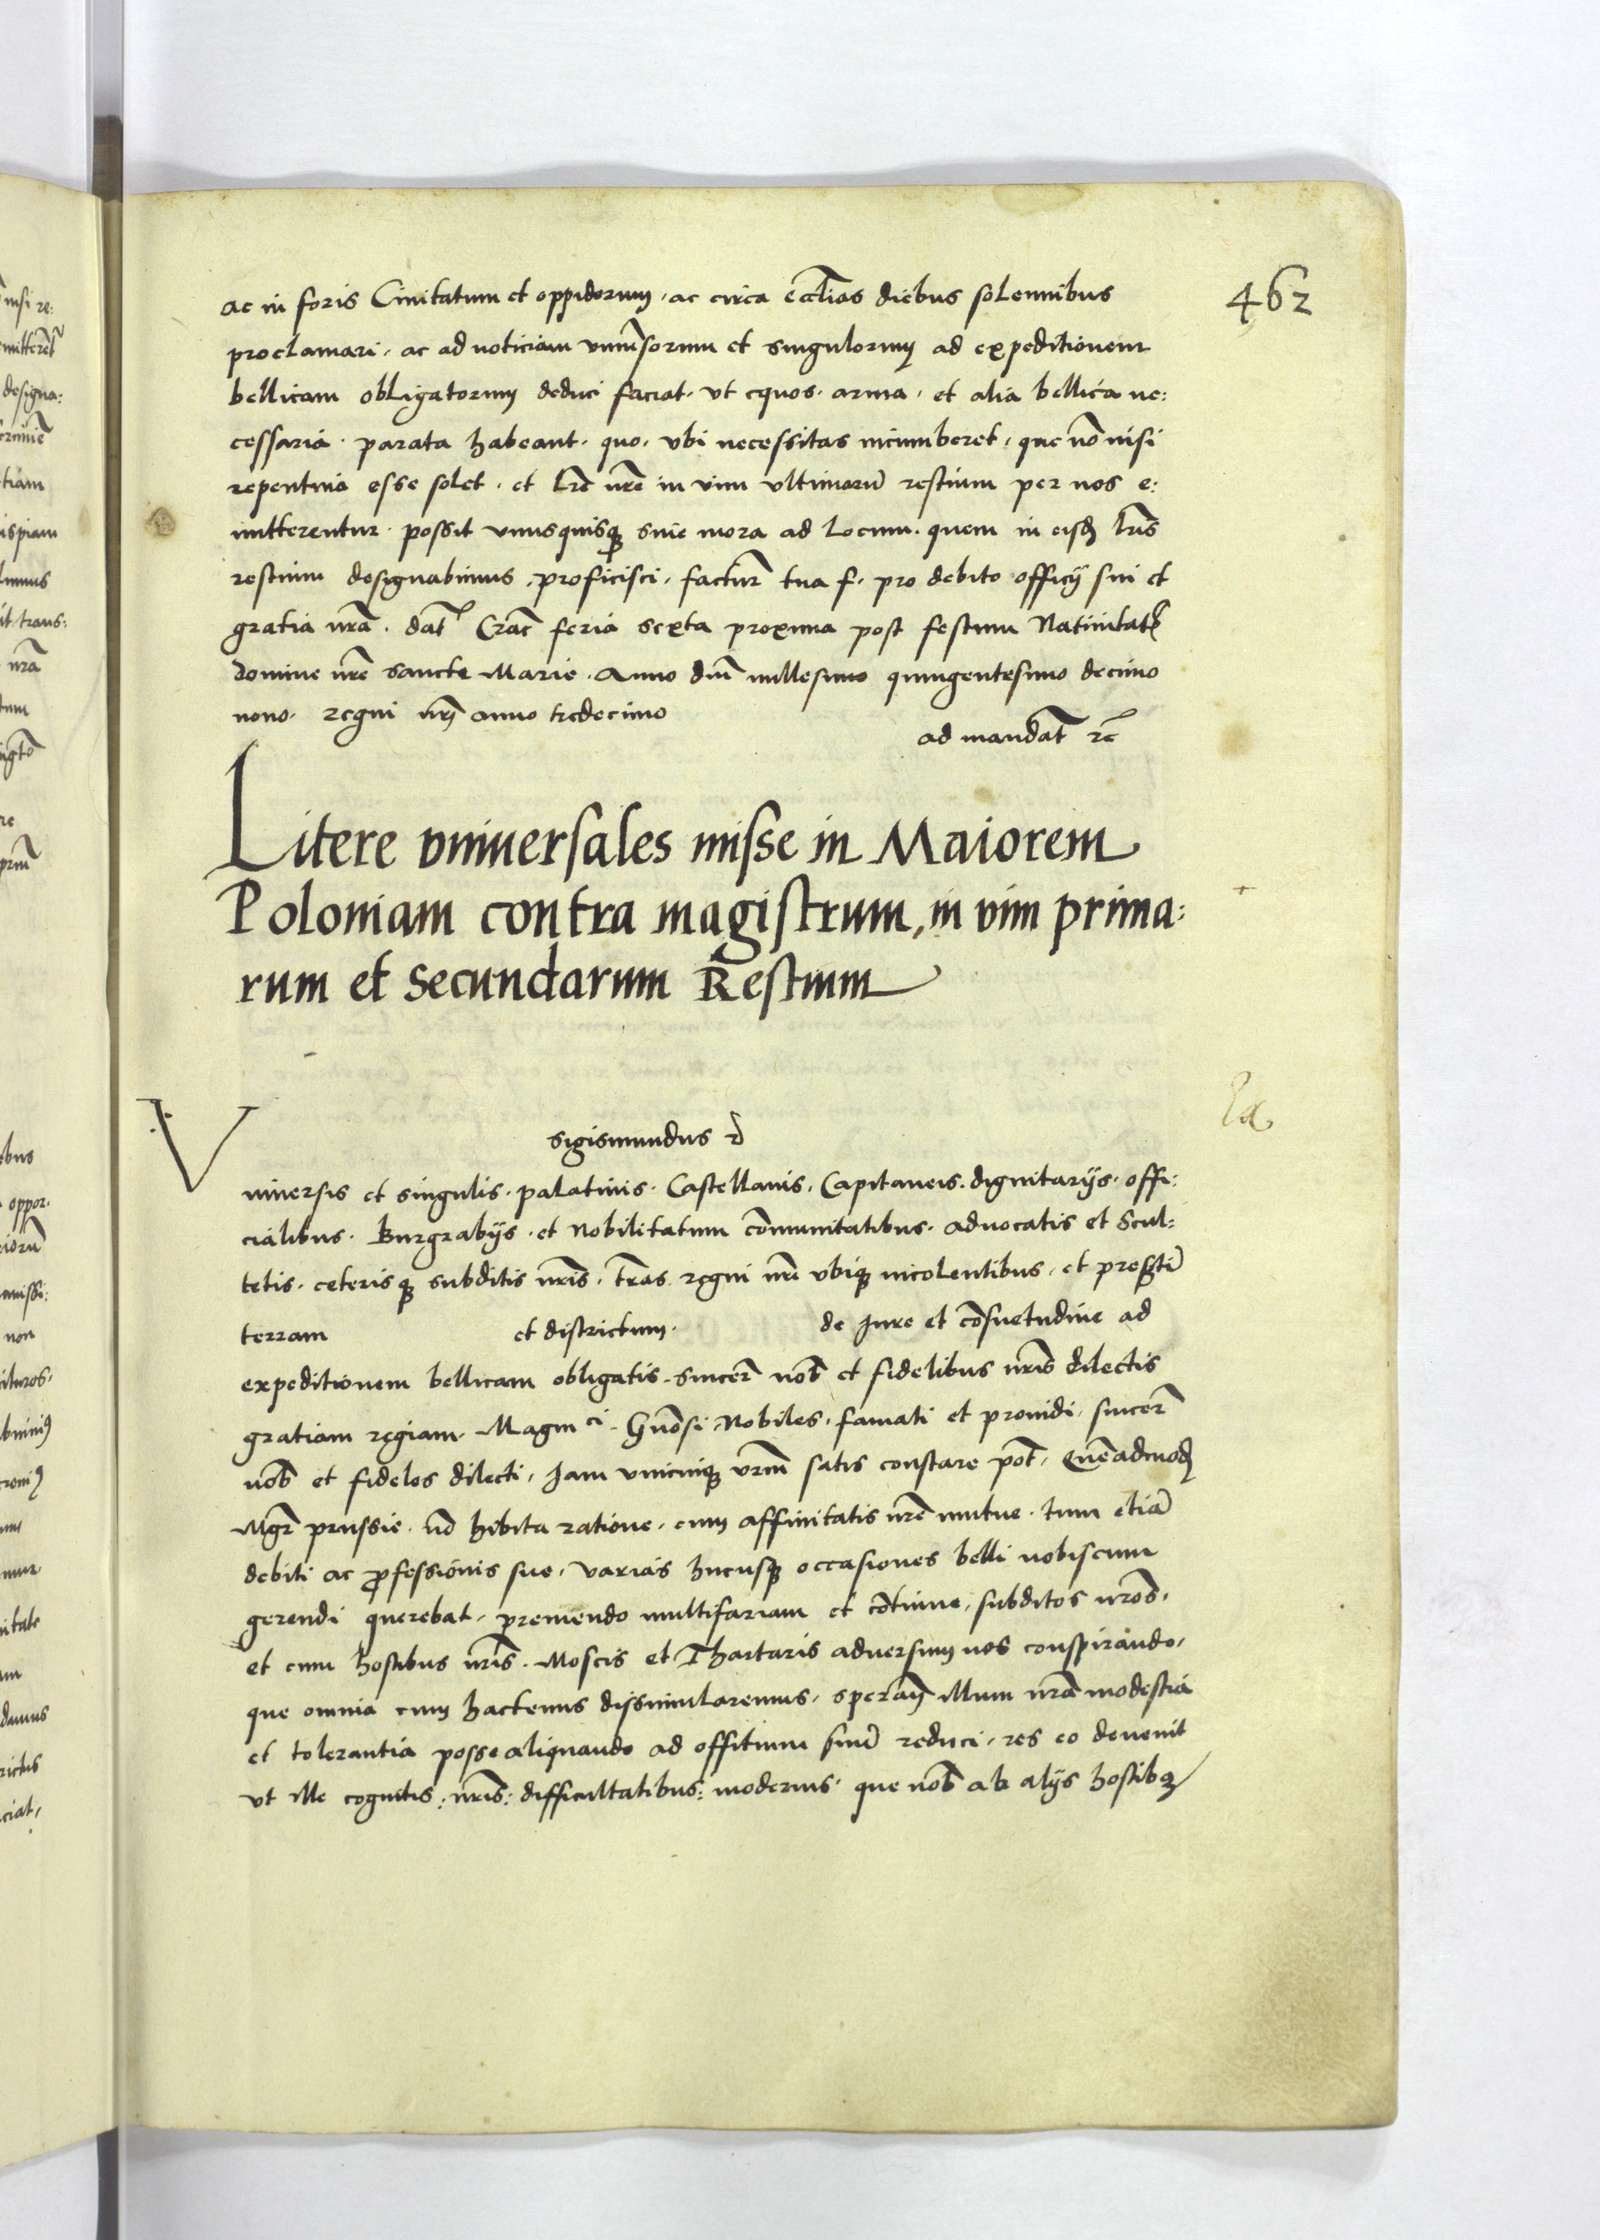 462
ac in foris Ciuitatum et oppidorum, ac circa eccłias diebus solennibus
proclamari, ac ad noticiam vniũsorum et singulorum ad expeditionem
bellicam obligatorum deduci faciat, vt equos, arma, et alia bellica ne:
cessaria, parata habeant, quo, vbi necessitas incumberet, que nõ nisi
repentina esse solet, et lr̃e nr̃e in vim vltimarũ restium per nos e:
mitterentur, possit vnusquisqꝫ sine mora ad locum, quem in eisdꝫ lr̃is
restium designabimus, proficisci, factur̃ tua f. pro debito officij sui et
gratia nr̃a. dat̃ Crac̃ feria sexta proxima post festum Natiuitat̃
domine nr̃e sancte Marie. Anno dnĩ millesimo quingentesimo decimo
nono. regni nrĩ anno tredecimo
ad mandat̃ rc̃
Litere vniuersales misse in Maiorem
Poloniam contra magistrum, in vim prima:
rum et secundarum Restium
Sigismundus
Vniuersis et singulis, palatinis, Castellanis, Capitaneis, dignitarijs, offi:
cialibus, Burgrabijs, et Nobilitatum cõmunitatibus, aduocatis et Scul:
tetis, ceterisqꝫ subditis nr̃is, tr̃as regni nrĩ vbiqꝫ incolentibus, et presertĩ
terram et districtum. de Jure et cõsuetudine ad
expeditionem bellicam obligatis, sincer̃ nob̃ et fidelibus nr̃is dilectis
gratiam regiam. Magnci. Gñosi, Nobiles, famati et prouidi, sincer̃
nob̃ et fideles dilecti, Jam vnicuiqꝫ vrm̃ satis constare pot̃, Quẽadmodꝫ
Mgr̃ prussie, nõ hibita ratione, cum affinitatis nr̃e mutue, tum etiã
debiti ac ꝓfessionis sue, varias hucusqꝫ occasiones belli nobiscum
gerendi querebat, premendo multifariam et cõtinue, subditos nr̃os,
et cum hostibus nr̃is. Moscis et Thartaris aduersum nos conspirando,
que omnia cum hactenus dissimularemus, sperañ illum nr̃a modestia
et tolerantia posse aliquando ad offitium suũ reduci, res eo deuenit
vt ille cognitis: nr̃is: difficultatibus: modernis, que nob̃ ab alijs hostibꝫ